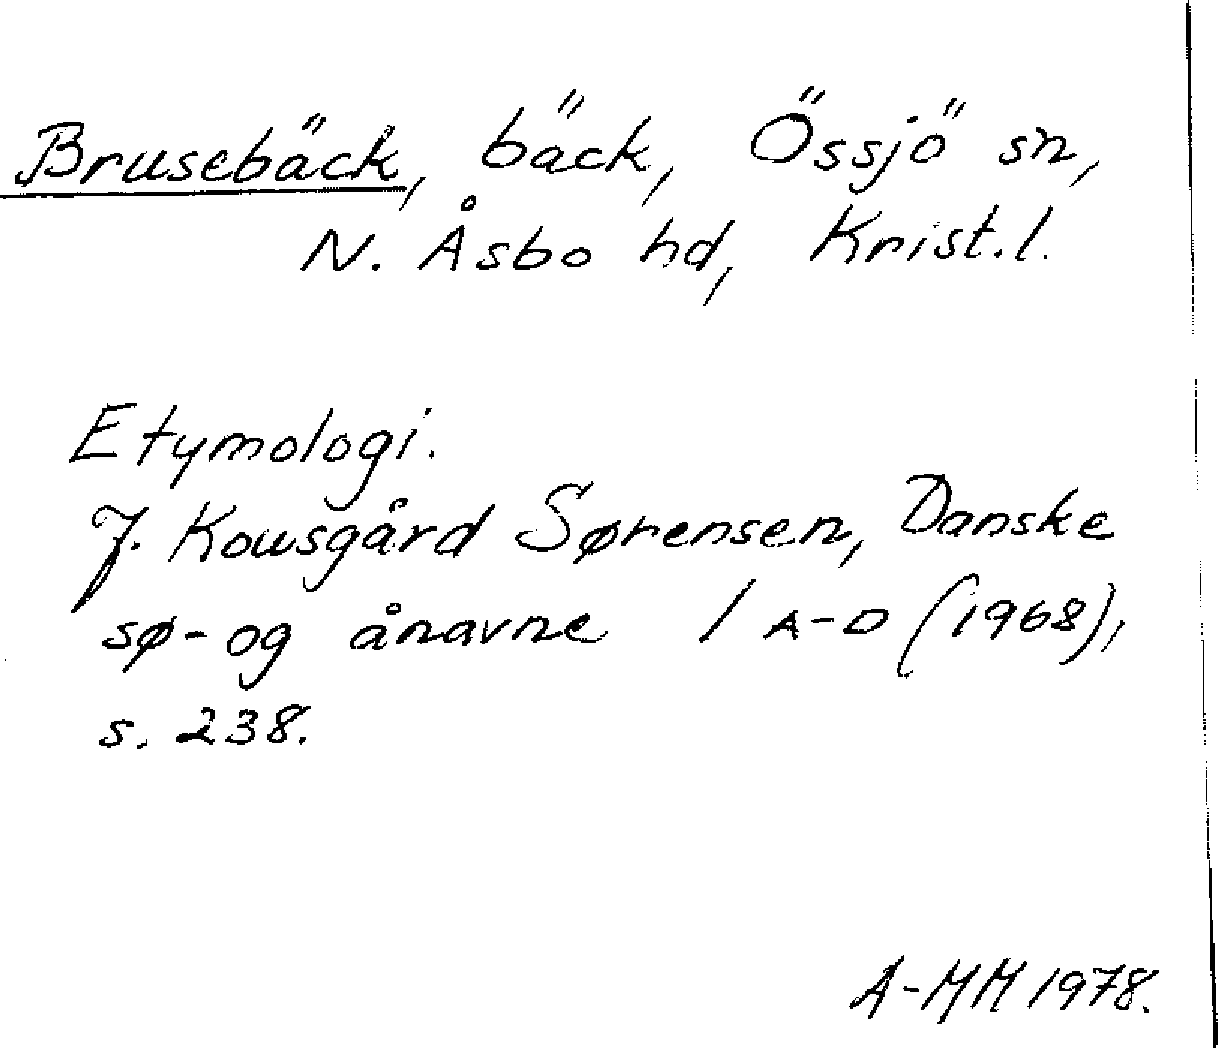 Brusebäck, bäck, Össjö sn,
N. Åsbo hd, Krist.l.
Etymologi.
J. Kousgård Sørensen, Danske
sø- og ånavne 1 A-D (1968),
s. 238.
A-MM 1978.